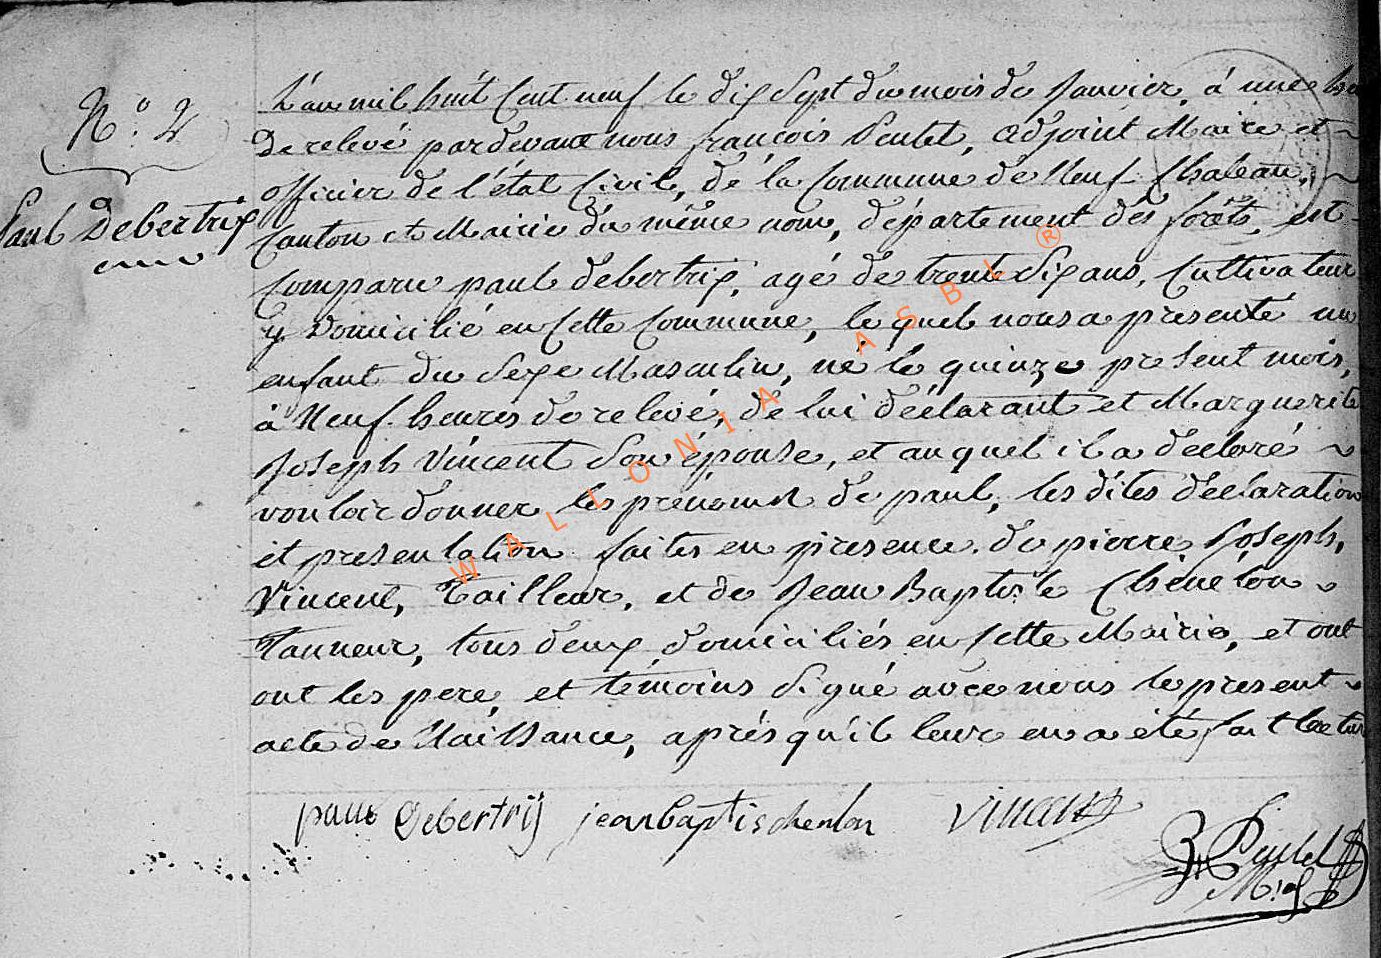 N.º 2
Paul Debertrix
L'an mil huit Cent neuf le dix Sept du mois de Janvier, à une he
de relevé pardevant nous françois Poulet, adjoint Maire et
officier de l'état Civil, de la Commune de Neuf-Chateau,
Canton et Mairie du même nom, département des forêts, est
Comparu paul debertrix, agé de trente Six ans, Cultivateur
y Domicilié en Cette Commune, le quel nous a presenté un
enfant du Sexe Masculin, né le quinze present mois,
à Neuf heures de relevé, de lui déclarant et Marguerite
Joseph Vincent Son épouse, et auquel il a déclaré
vouloir donner les prénoms de paul, les dites déclaration
et presentation faites en presence de pierre Joseph,
Vincent, Tailleur, et de Jean Baptiste Cheneton
Tanneur, tous deux domiciliés en Cette Mairie, et ont
ont les pere, et témoins Signé avec nous le present
acte de Naissance, après qu'il leur en a été fait lectur
paul Debertrix jeanbaptis chenton Vincent
WALLONIA ASBL ®